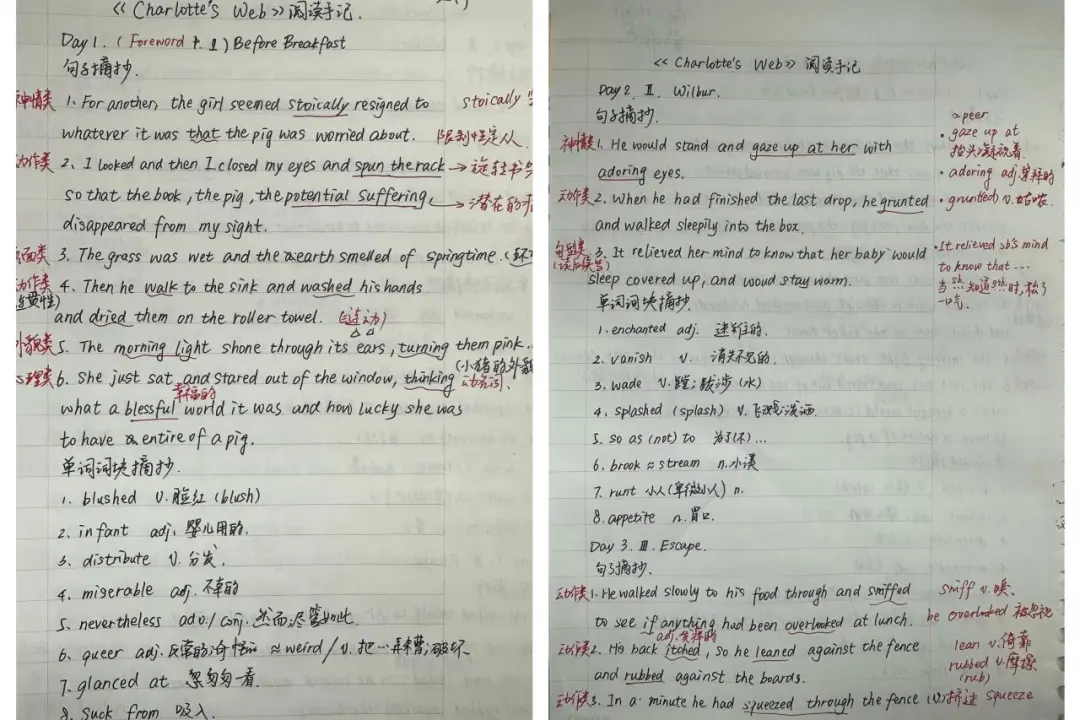 《Charlotte's Web》阅读手记.
Day 1. (Foreword + 1) Before Breakfast
句子摘抄.
神情类 1. For another, the girl seemed stoically resigned to stoically
whatever it was that the pig was worried about. 限制性定从
动作类 2. I looked and then I closed my eyes and spun the rack → 旋转书
so that the book, the pig, the potential suffering → 潜在的
disappeared from my sight.
面类 3. The grass was wet and the earth smelled of springtime.
动作类 4. Then he walk to the sink and washed his hands
(连贯性) and dried them on the roller towel. (连动)
外貌类 5. The morning light shone through its ears, turning them pink.
(小猪的外貌
心理类 6. She just sat and stared out of the window, thinking 动名词.
幸福的
what a blessful world it was and how lucky she was
to have entire of a pig.
单词词块摘抄.
1. blushed v. 脸红 (blush)
2. infant adj. 婴儿用的.
3. distribute v. 分发.
4. miserable adj. 不幸的
5. nevertheless adv./conj. 然而尽管如此.
6. queer adj. 反常的奇怪 ≈ weird / v. 把…弄糟;破坏
7. glanced at 匆匆一看.
8. suck from 吸入.
《Charlotte's Web》阅读手记
Day 2. Ⅱ. Wilbur.
句子摘抄.
神情类 1. He would stand and gaze up at her with
adoring eyes.
动作类 2. When he had finished the last drop, he grunted
and walked sleepily into the box.
句型类 3. It relieved her mind to know that her baby would
(读后续写)
sleep covered up, and woud stay warm.
≈ peer
• gaze up at
抬头凝视着.
• adoring adj. 崇拜的
• grunted v. 咕哝.
• It relieved sb's mind
to know that …
当sb.知道sth.时,松了
一口气.
单词词块摘抄.
1. enchanted adj. 迷住的.
2. vanish v. 消失不见的.
3. wade v. 蹚;跋涉(水)
4. splashed (splash) v. 飞溅;泼洒.
5. so as (not) to 为了(不)…
6. brook ≈ stream n. 小溪
7. runt 小人(卑微小人) n.
8. appetite n. 胃口.
Day 3. Ⅲ. Escape.
句子摘抄.
动作类 1. He walked slowly to his food through and sniffed sniff v. 嗅.
to see if anything had been overlooked at lunch. be overlooked 被忽视
adj. 发痒的
动作类 2. His back itched, so he leaned against the fence lean v. 倚靠
and rubbed against the boards. rubbed v. 摩擦
(rub)
动作类 3. In a minute he had squeezed through the fence (v.) 挤过 squeeze